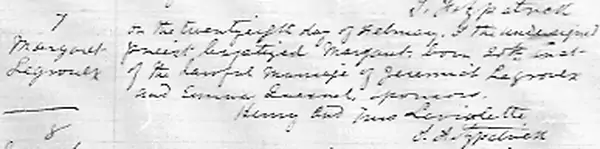 J. Fitzpatrick
7
Margaret
Legroulx
on the twentyeigth day of February. I the undersigned
priest baptized Margaret. born 20th inst-
of the lawful marriage of Jeremiah Legroulx
and Emma Quesnel, sponsors.
Henry and Mrs Leviolette
J. Fitzpatrick
8